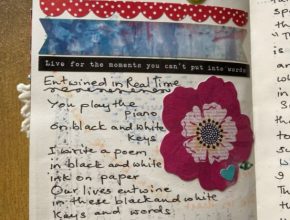 Live for the moments you can't put into words
Entwined in Real Time
You play the
piano
on black and white
keys
I write a poem
in black and white
ink on paper
Our lives entwine
in these black and white
Keys and words